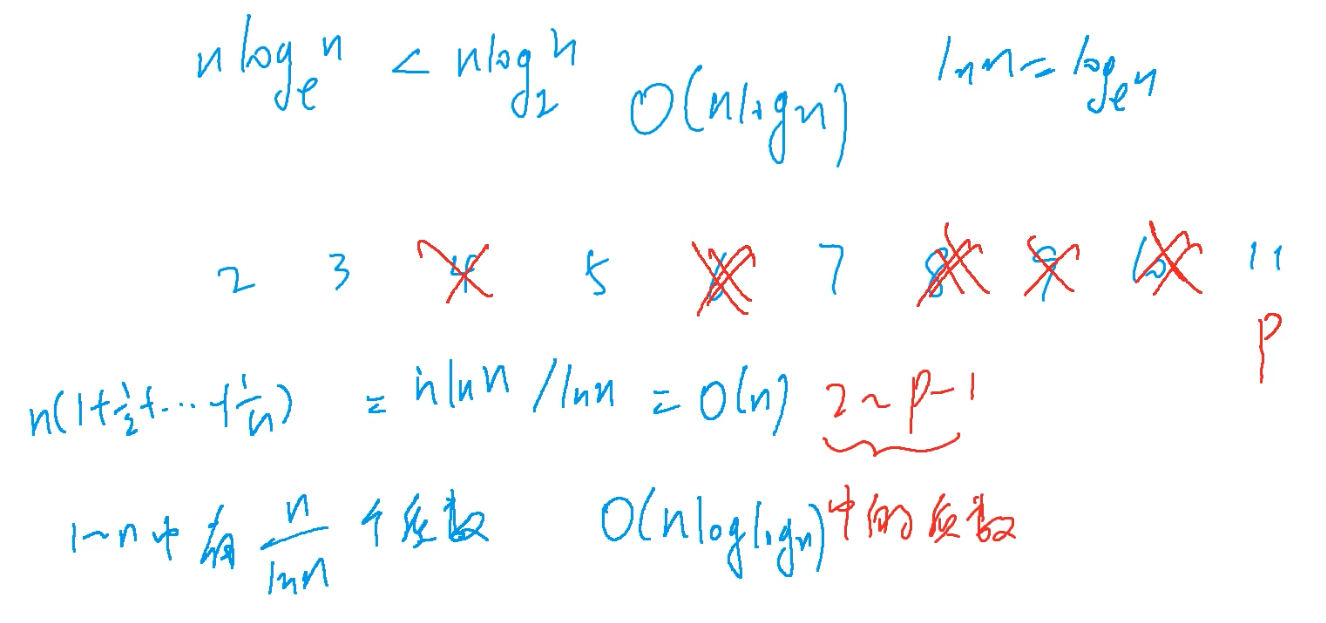 n log_e n < n log_2 n O(nlogn) ln n = log_e n
2 3 4 5 6 7 8 9 10 11
P
n(1+1/2+...+1/n) = n ln n / ln n = O(n) 2~P-1
1~n中有 n/ln n 个质数 O(nloglogn) 中的质数